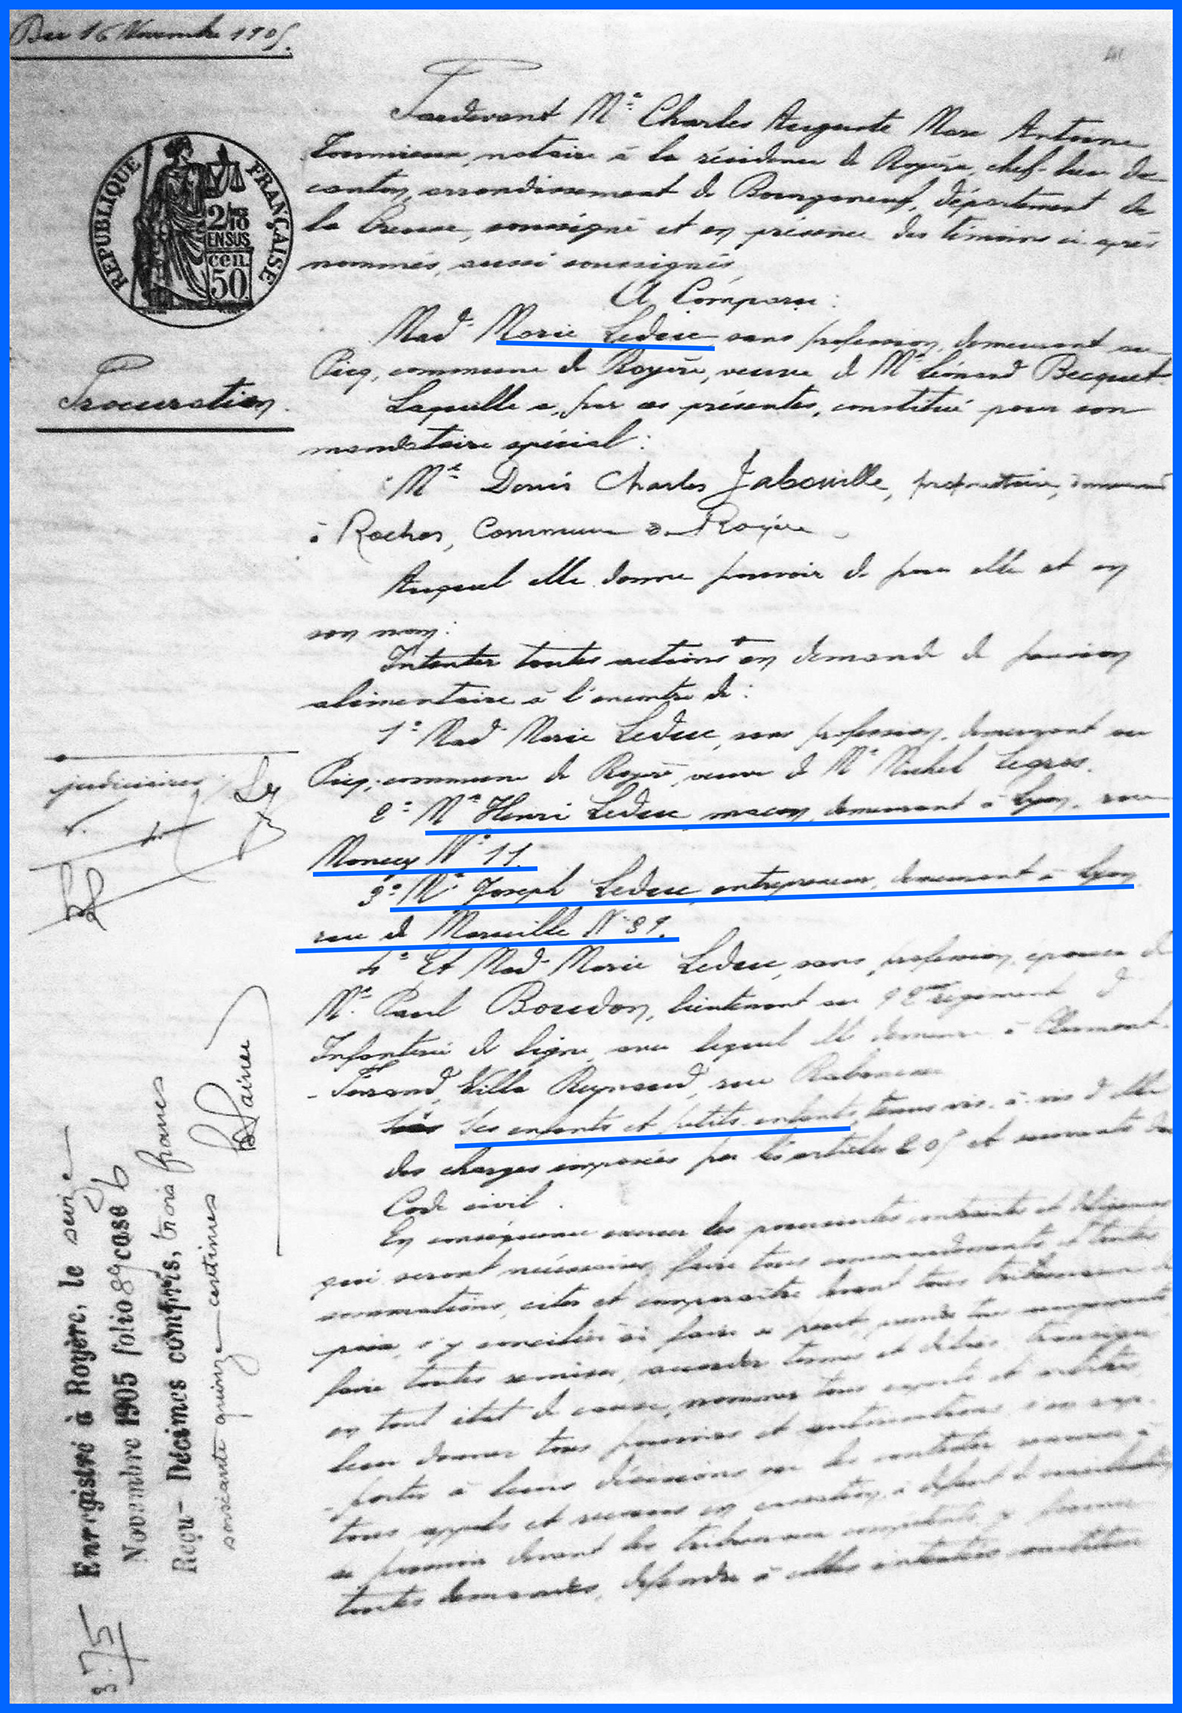 Du 16 Novembre 1905.
41
Pardevant Mᵉ Charles Auguste Marc Antoine
notaire à la résidence de Royère, chef-lieu de
canton, arrondissement de Bourganeuf, département de
la Creuse, soussigné et en présence des témoins ci-après
nommés, aussi soussignés,
RÉPUBLIQUE FRANÇAISE
2/10
EN SUS
cen.
50
A Comparu :
Madᵉ Marie Leduc sans profession, demeurant au
Picq, commune de Royère, veuve de Mʳ Léonard Becquet.
Procuration.
Laquelle a, par ces présentes, constitué pour son
mandataire spécial :
Mʳ Denis Charles Jabouille, propriétaire, demeurant
à Rochas, Commune de Royère.
Auquel elle donne pouvoir de pour elle et en
son nom :
Intenter toutes actions + en demande de pension
alimentaire à l'encontre de :
1º Madᵉ Marie Leduc, sans profession, demeurant au
judiciaires
Picq, commune de Royère, veuve de Mʳ Michel Legros.
2º Mʳ Henri Leduc maçon, demeurant à Lyon, rue
Moncey Nº 11.
3º Mʳ Joseph Leduc entrepreneur, demeurant à Lyon
rue de Marseille Nº 89.
4º Et Madᵉ Marie Leduc, sans profession, épouse de
Mʳ Paul Boudon, lieutenant au 92ᵐᵉ régiment d'
Infanterie de ligne, avec lequel elle demeure à Clermont-
-Ferrand, Villa Reynaud, rue
Ses enfants et petits-enfants, tenus vis-à-vis d'elle
des charges imposées par les articles 205 et suivants du
Code civil.
En conséquence exercer les poursuites contraintes et diligences
qui seront nécessaires, faire tous commandements et toutes
sommations, citer et comparaître devant tous tribunaux de
paix, s'y concilier si faire se peut, prendre tous arrangements,
faire toutes remises, accorder termes et délais, transiger
en tout état de cause, nommer tous experts et arbitres,
leur donner tous pouvoirs et autorisations, s'en rap-
-porter à leurs décisions ou les contester
tous appels et recours en cassation, à défaut de conciliation
se pourvoir devant les tribunaux compétents, y former
toutes demandes, défendre à celles intentées, constituer
Enregistré à Royère, le seize
Novembre 1905 folio 89 case 6
Reçu - Décimes compris, trois francs
soixante quinze centimes
3.75